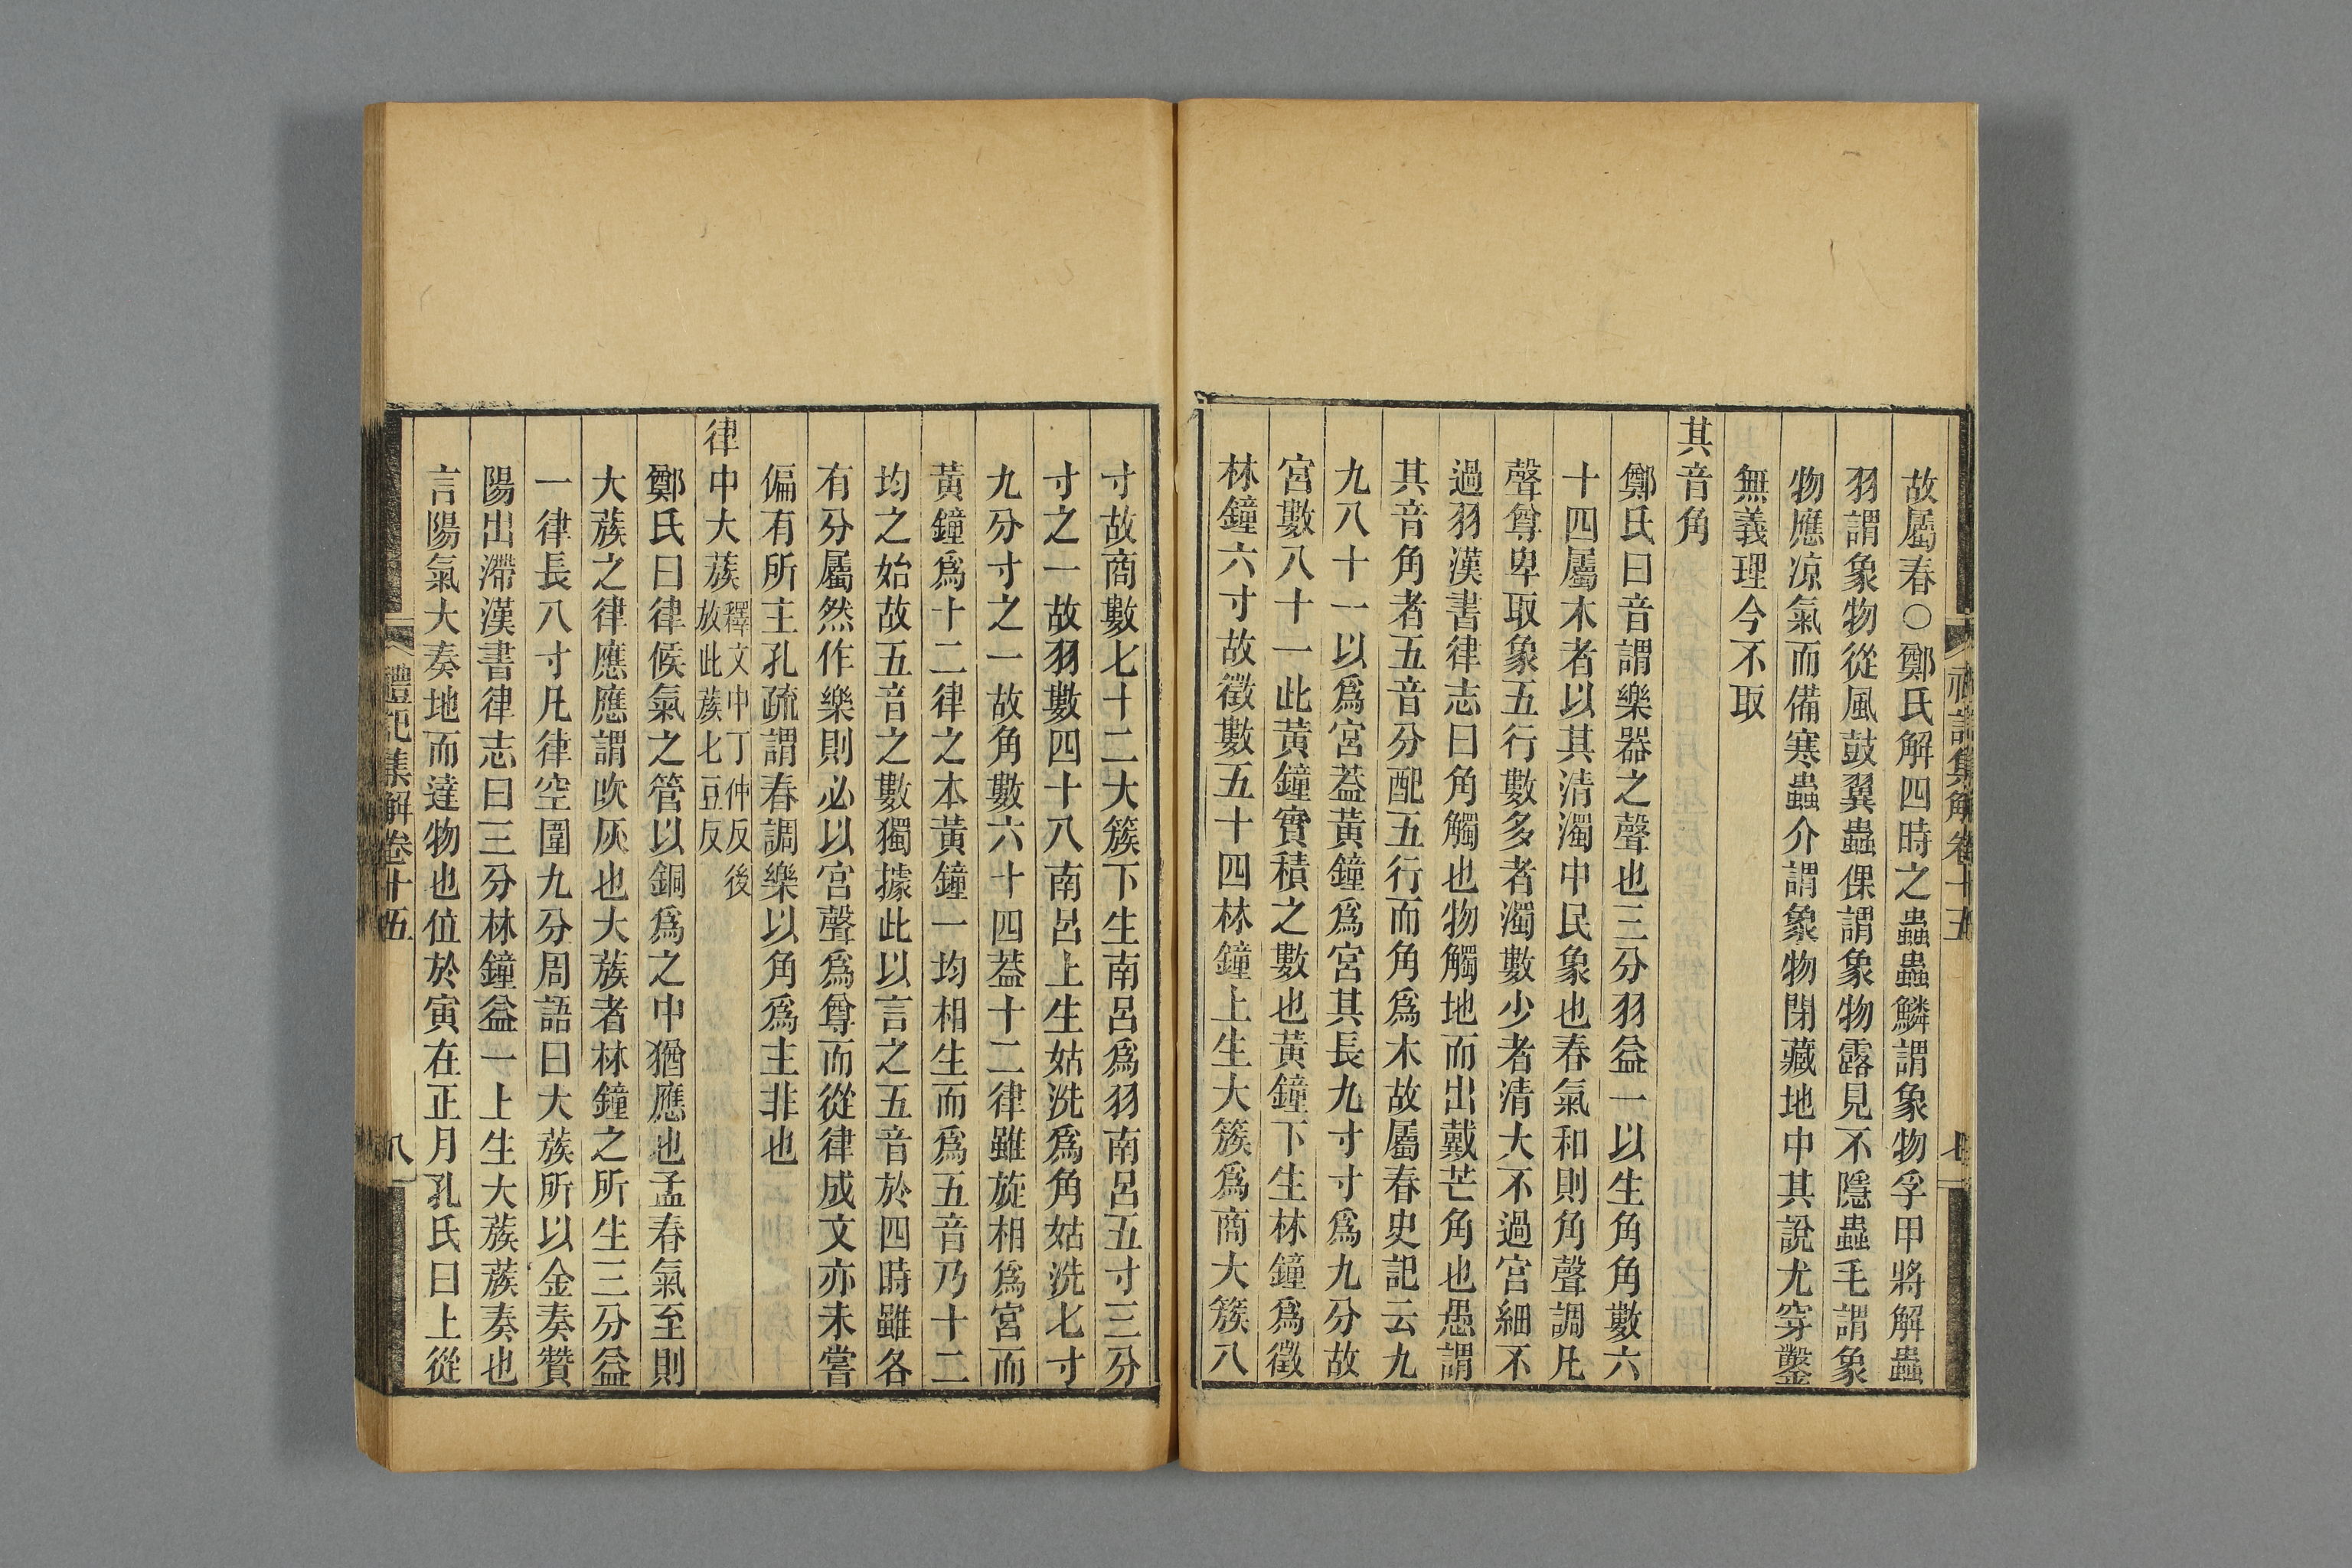 禮記集解卷十五
七
故屬春○鄭氏解四時之蟲蟲鱗謂象物孚甲將解蟲
羽謂象物從風鼓翼蟲倮謂象物露見不隱蟲毛謂象
物應凉氣而備寒蟲介謂象物閉藏地中其說尤穿鑿
無義理今不取
其音角
鄭氏曰音謂樂器之聲也三分羽益一以生角角數六
十四屬木者以其清濁中民象也春氣和則角聲調凡
聲尊卑取象五行數多者濁數少者清大不過宮細不
過羽漢書律志曰角觸也物觸地而出戴芒角也愚謂
其音角者五音分配五行而角爲木故屬春史記云九
九八十一以爲宮葢黃鐘爲宮其長九寸寸爲九分故
宮數八十一此黃鐘實積之數也黃鐘下生林鐘爲徵
林鐘六寸故徵數五十四林鐘上生大簇爲商大簇八
寸故商數七十二大簇下生南呂爲羽南呂五寸三分
寸之一故羽數四十八南呂上生姑洗爲角姑洗七寸
九分寸之一故角數六十四葢十二律雖旋相爲宮而
黃鐘爲十二律之本黃鐘一均相生而爲五音乃十二
均之始故五音之數獨據此以言之五音於四時雖各
有分屬然作樂則必以宮聲爲尊而從律成文亦未嘗
偏有所主孔疏謂春調樂以角爲主非也
律中大蔟釋文中丁仲反後
放此蔟七豆反
鄭氏曰律候氣之管以銅爲之中猶應也孟春氣至則
大蔟之律應應謂吹灰也大蔟者林鐘之所生三分益
一律長八寸凡律空圍九分周語曰大蔟所以金奏贊
陽出滯漢書律志曰三分林鐘益一上生大蔟蔟奏也
言陽氣大奏地而達物也位於寅在正月孔氏曰上從
禮記集解卷十五
八